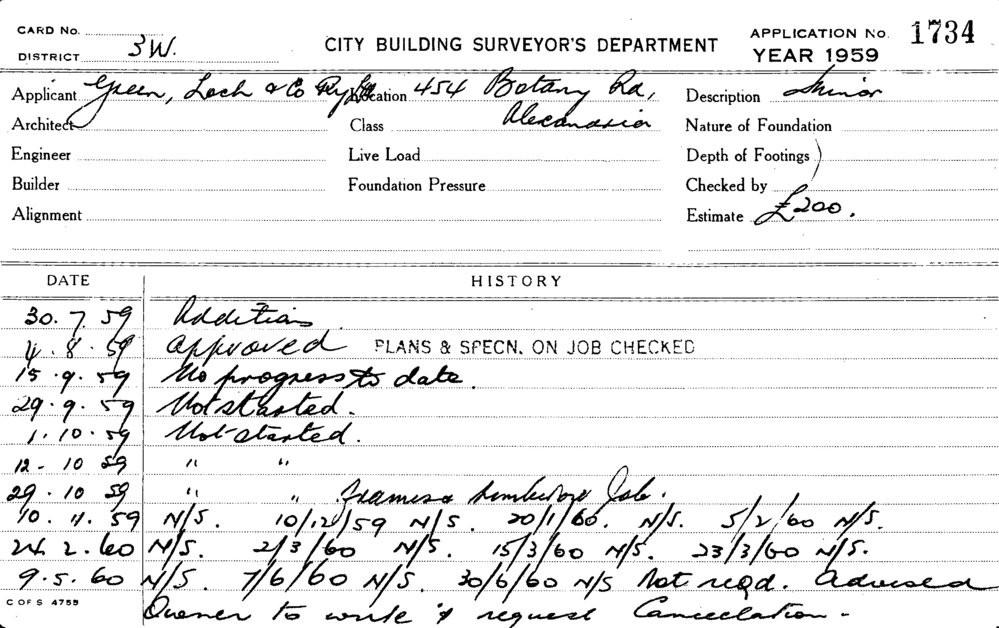 CARD No.
DISTRICT 3W.
CITY BUILDING SURVEYOR'S DEPARTMENT
APPLICATION No. 1734
YEAR 1959
Applicant Green, Loch & Co Pty Ltd Location 454 Botany Rd, Description Minor
Architect Class Alexandria Nature of Foundation
Engineer Live Load Depth of Footings
Builder Foundation Pressure Checked by
Alignment Estimate £200.
DATE HISTORY
30.7.59 Additions
4.8.59 Approved PLANS & SPECN. ON JOB CHECKED
15.9.59 No progress to date.
29.9.59 Not started.
1.10.59 Not started.
12-10 59 " "
29.10 59 " " Job.
10.11.59 N/S. 10/12/59 N/S. 20/1/60. N/S. 5/2/60 N/S.
24.2.60 N/S. 2/3/60 N/S. 15/3/60 N/S. 23/3/60 N/S.
9.5.60 N/S. 7/6/60 N/S. 30/6/60 N/S Not reqd. Advised
C OF S 4759 Owner to write & request Cancellation -